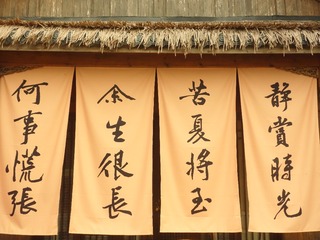 靜賞時光
苦夏將至
余生很長
何事慌張